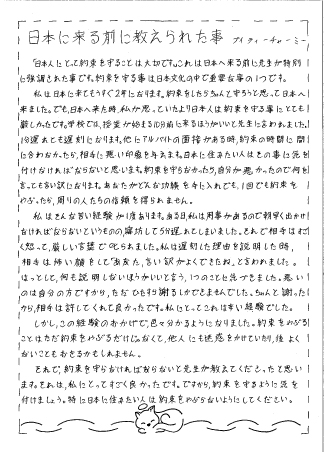 日本に来る前に教えられた事
アイ ティーチャーミー
日本人にとって約束を守ることは大切です。これは日本へ来る前に先生が特別
に強調された事です。約束を守る事は日本文化の中で重要な事の1つです。
私は日本に来てもうすぐ2年になります。約束をしたらちゃんと守ろうと思って日本へ
来ました。でも、日本へ来た時、私が思っていたより日本人は約束を守る事にとても
厳しかったです。学校では、授業が始まる10分前に来るほうがいいと先生に言われました。
1分遅れても遅刻になります。他にアルバイトの面接がある時、約束の時間に間
に合わなかったら、相手に悪い印象を与えます。日本に住みたい人はこの事に気を
付けなければならないと思います。約束を守らなかったら、自分が悪かったので何を
言っても言い訳になります。あなたがどんな功績を手に入れても、1回でも約束を
やぶったら、周りの人たちの信頼を得られません。
私はそんな苦い経験が1度あります。ある日、私は用事があるので朝早く出かけ
なければならないというものの、寝坊して5分遅れてしまいました。それで相手はすご
く怒って、厳しい言葉で叱られました。私は遅刻した理由を説明した時、
相手は怖い顔をして「あなた、言い訳がよくできたね」と言われました。
はっとして、何も説明しないほうがいいと言う、1つのことに気づきました。悪い
のは自分の方ですから、ただひたすら謝るしかできませんでした。ちゃんと謝った
から、相手は許してくれて良かったです。私にとってこれは辛い経験でした。
しかし、この経験のおかげで、色々分かるようになりました。約束をやぶる
ことはただ約束をやぶるだけじゃなくて、他人にも迷惑をかけていり、後よく
ないこともおきるかもしれません。
それで、約束を守らなければならないと先生が教えてくださったと思い
ます。それは、私にとってすごく良かったです。ですから、約束を守るように気を
付けましょう。特に日本に住みたい人は約束をやぶらないようにしてください。